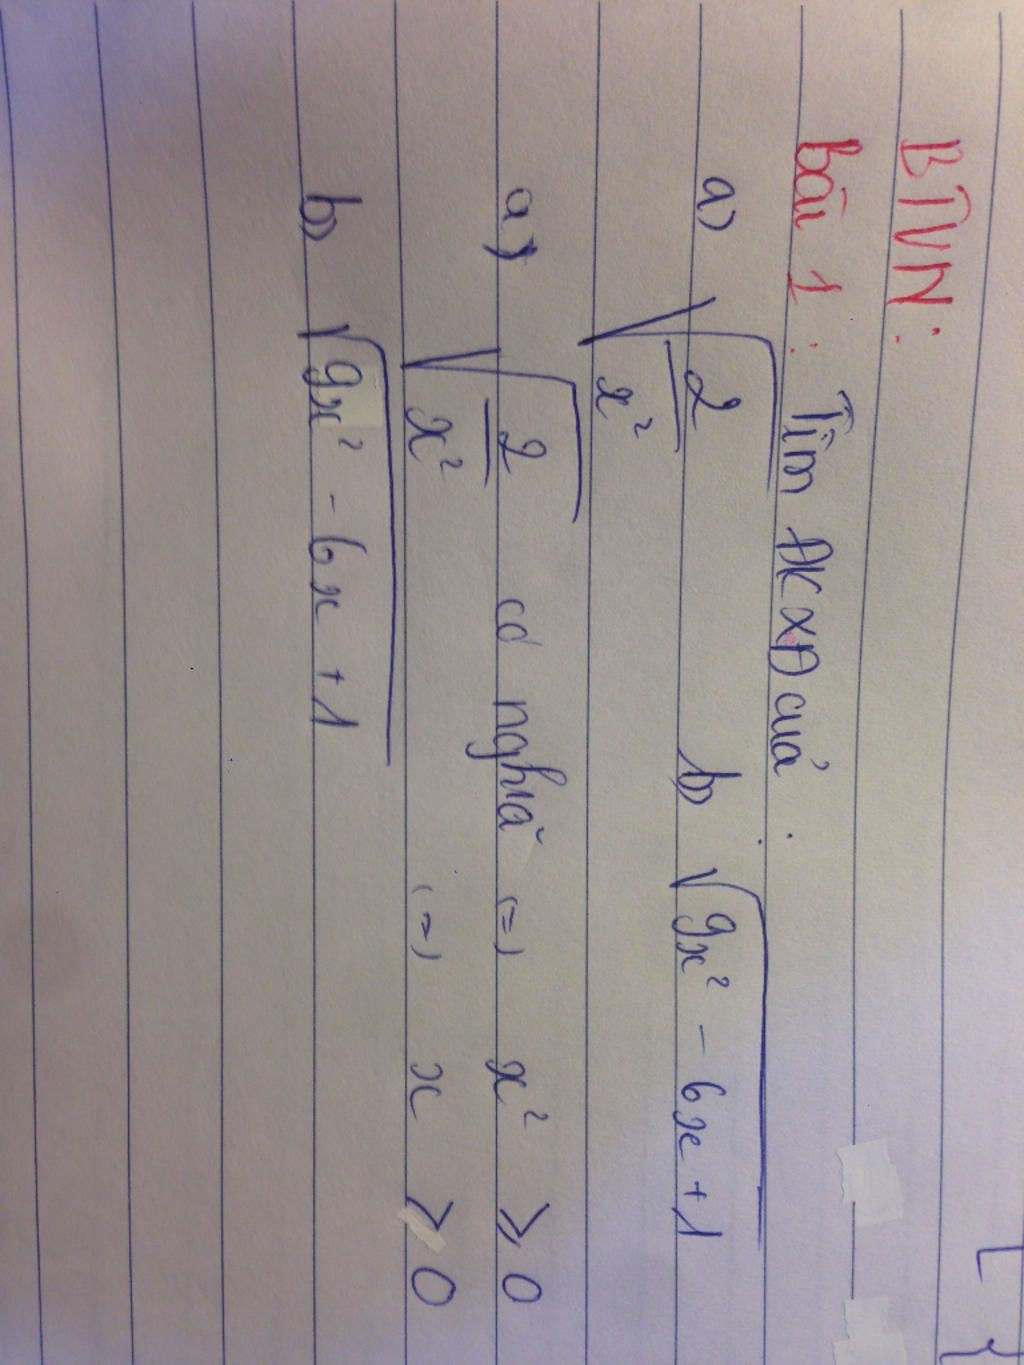 BTVN:
Bài 1: Tìm ĐKXĐ của:
a) √(2/x²) b) √(9x² - 6x + 1)
a) √(2/x²) có nghĩa (=) x² ≥ 0
(=) x ≥ 0
b) √(9x² - 6x + 1)